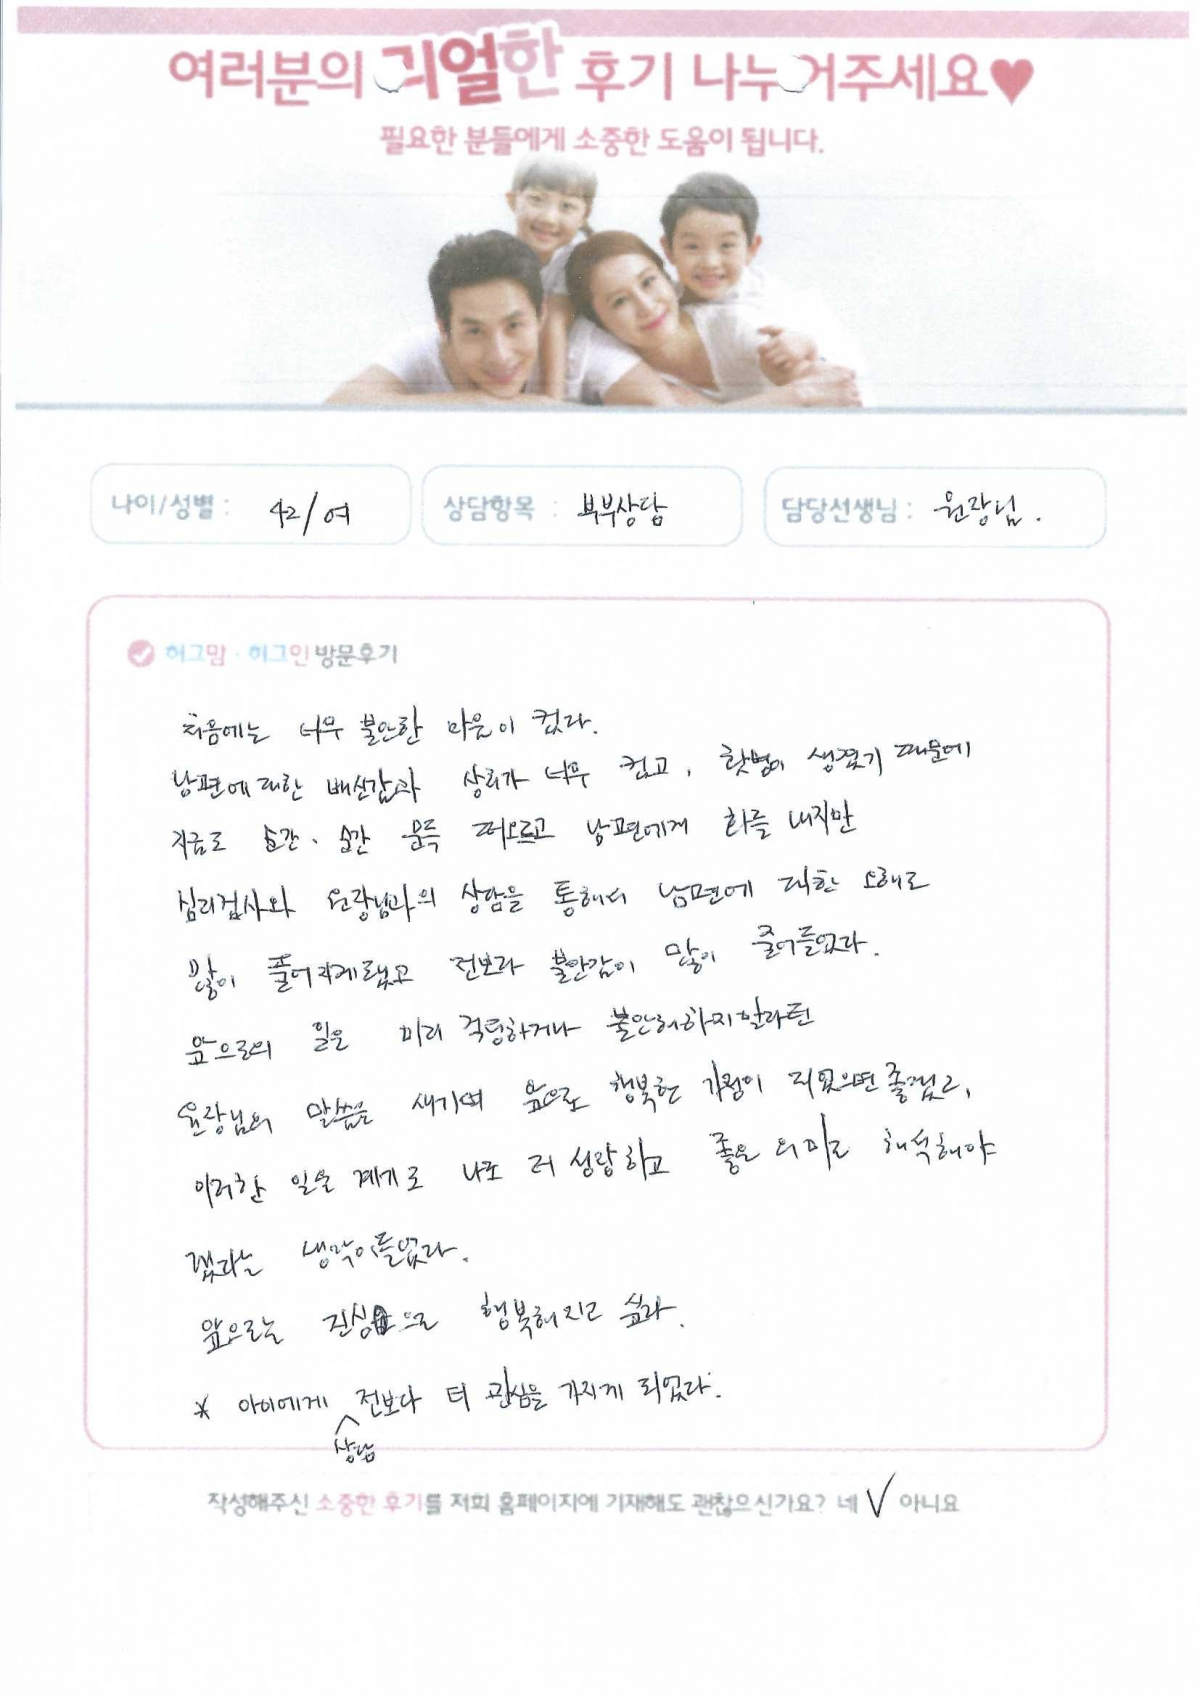 여러분의 귀얼한 후기 나누어주세요♥
필요한 분들에게 소중한 도움이 됩니다.
나이/성별 : 42/여
상담항목 : 부부상담
담당선생님 : 원장님.
허그맘·허그인 방문후기
처음에는 너무 불안한 마음이 컸다.
남편에 대한 배신감과 상처가 너무 컸고, 홧병이 생겼기 때문에
지금도 순간·순간 문득 떠오르고 남편에게 화를 내지만
심리검사와 원장님과의 상담을 통해서 남편에 대한 오해도
많이 풀어지게 됐고 전보다 불안감이 많이 줄어들었다.
앞으로의 일을 미리 걱정하거나 불안해하지말라던
원장님의 말씀을 새기며 앞으로 행복한 가정이 되었으면 좋겠고,
이러한 일을 계기로 나도 더 성장하고 좋은 의미로 해석해야
겠다는 생각이들었다.
앞으로는 진심으로 행복해지고 싶다.
* 아이에게 상담 전보다 더 관심을 가지게 되었다.
작성해주신 소중한 후기를 저희 홈페이지에 기재해도 괜찮으신가요? 네 ✓ 아니요